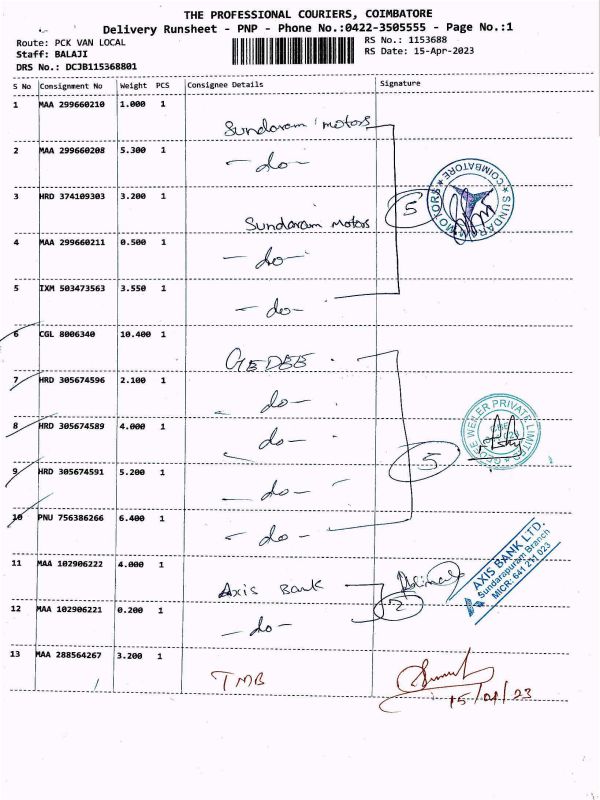 THE PROFESSIONAL COURIERS, COIMBATORE
Delivery Runsheet - PNP - Phone No.:0422-3505555 - Page No.:1
Route: PCK VAN LOCAL
RS No.: 1153688
Staff: BALAJI
RS Date: 15-Apr-2023
DRS No.: DCJB115368801
S No Consignment No Weight PCS Consignee Details Signature
1 MAA 299660210 1.000 1
Sundaram motors
2 MAA 299660208 5.300 1
- do -
3 HRD 374109303 3.200 1
Sundaram Motors
5
SUNDARAM MOTORS ★ COIMBATORE ★
4 MAA 299660211 0.500 1
- do -
5 IXM 503473563 3.550 1
- do -
6 CGL 8006340 10.400 1
GEDEE
7 HRD 305674596 2.100 1
- do -
8 HRD 305674589 4.000 1
- do -
WEILER PRIVATE LIMITED
9 HRD 305674591 5.200 1
- do -
5
10 PNU 756386266 6.400 1
- do -
11 MAA 102906222 4.000 1
Axis Bank
AXIS BANK LTD.
Sundarapuram Branch
MICR: 641 211 023
12 MAA 102906221 0.200 1
2
- do -
13 MAA 288564267 3.200 1
TMB
15/04/23